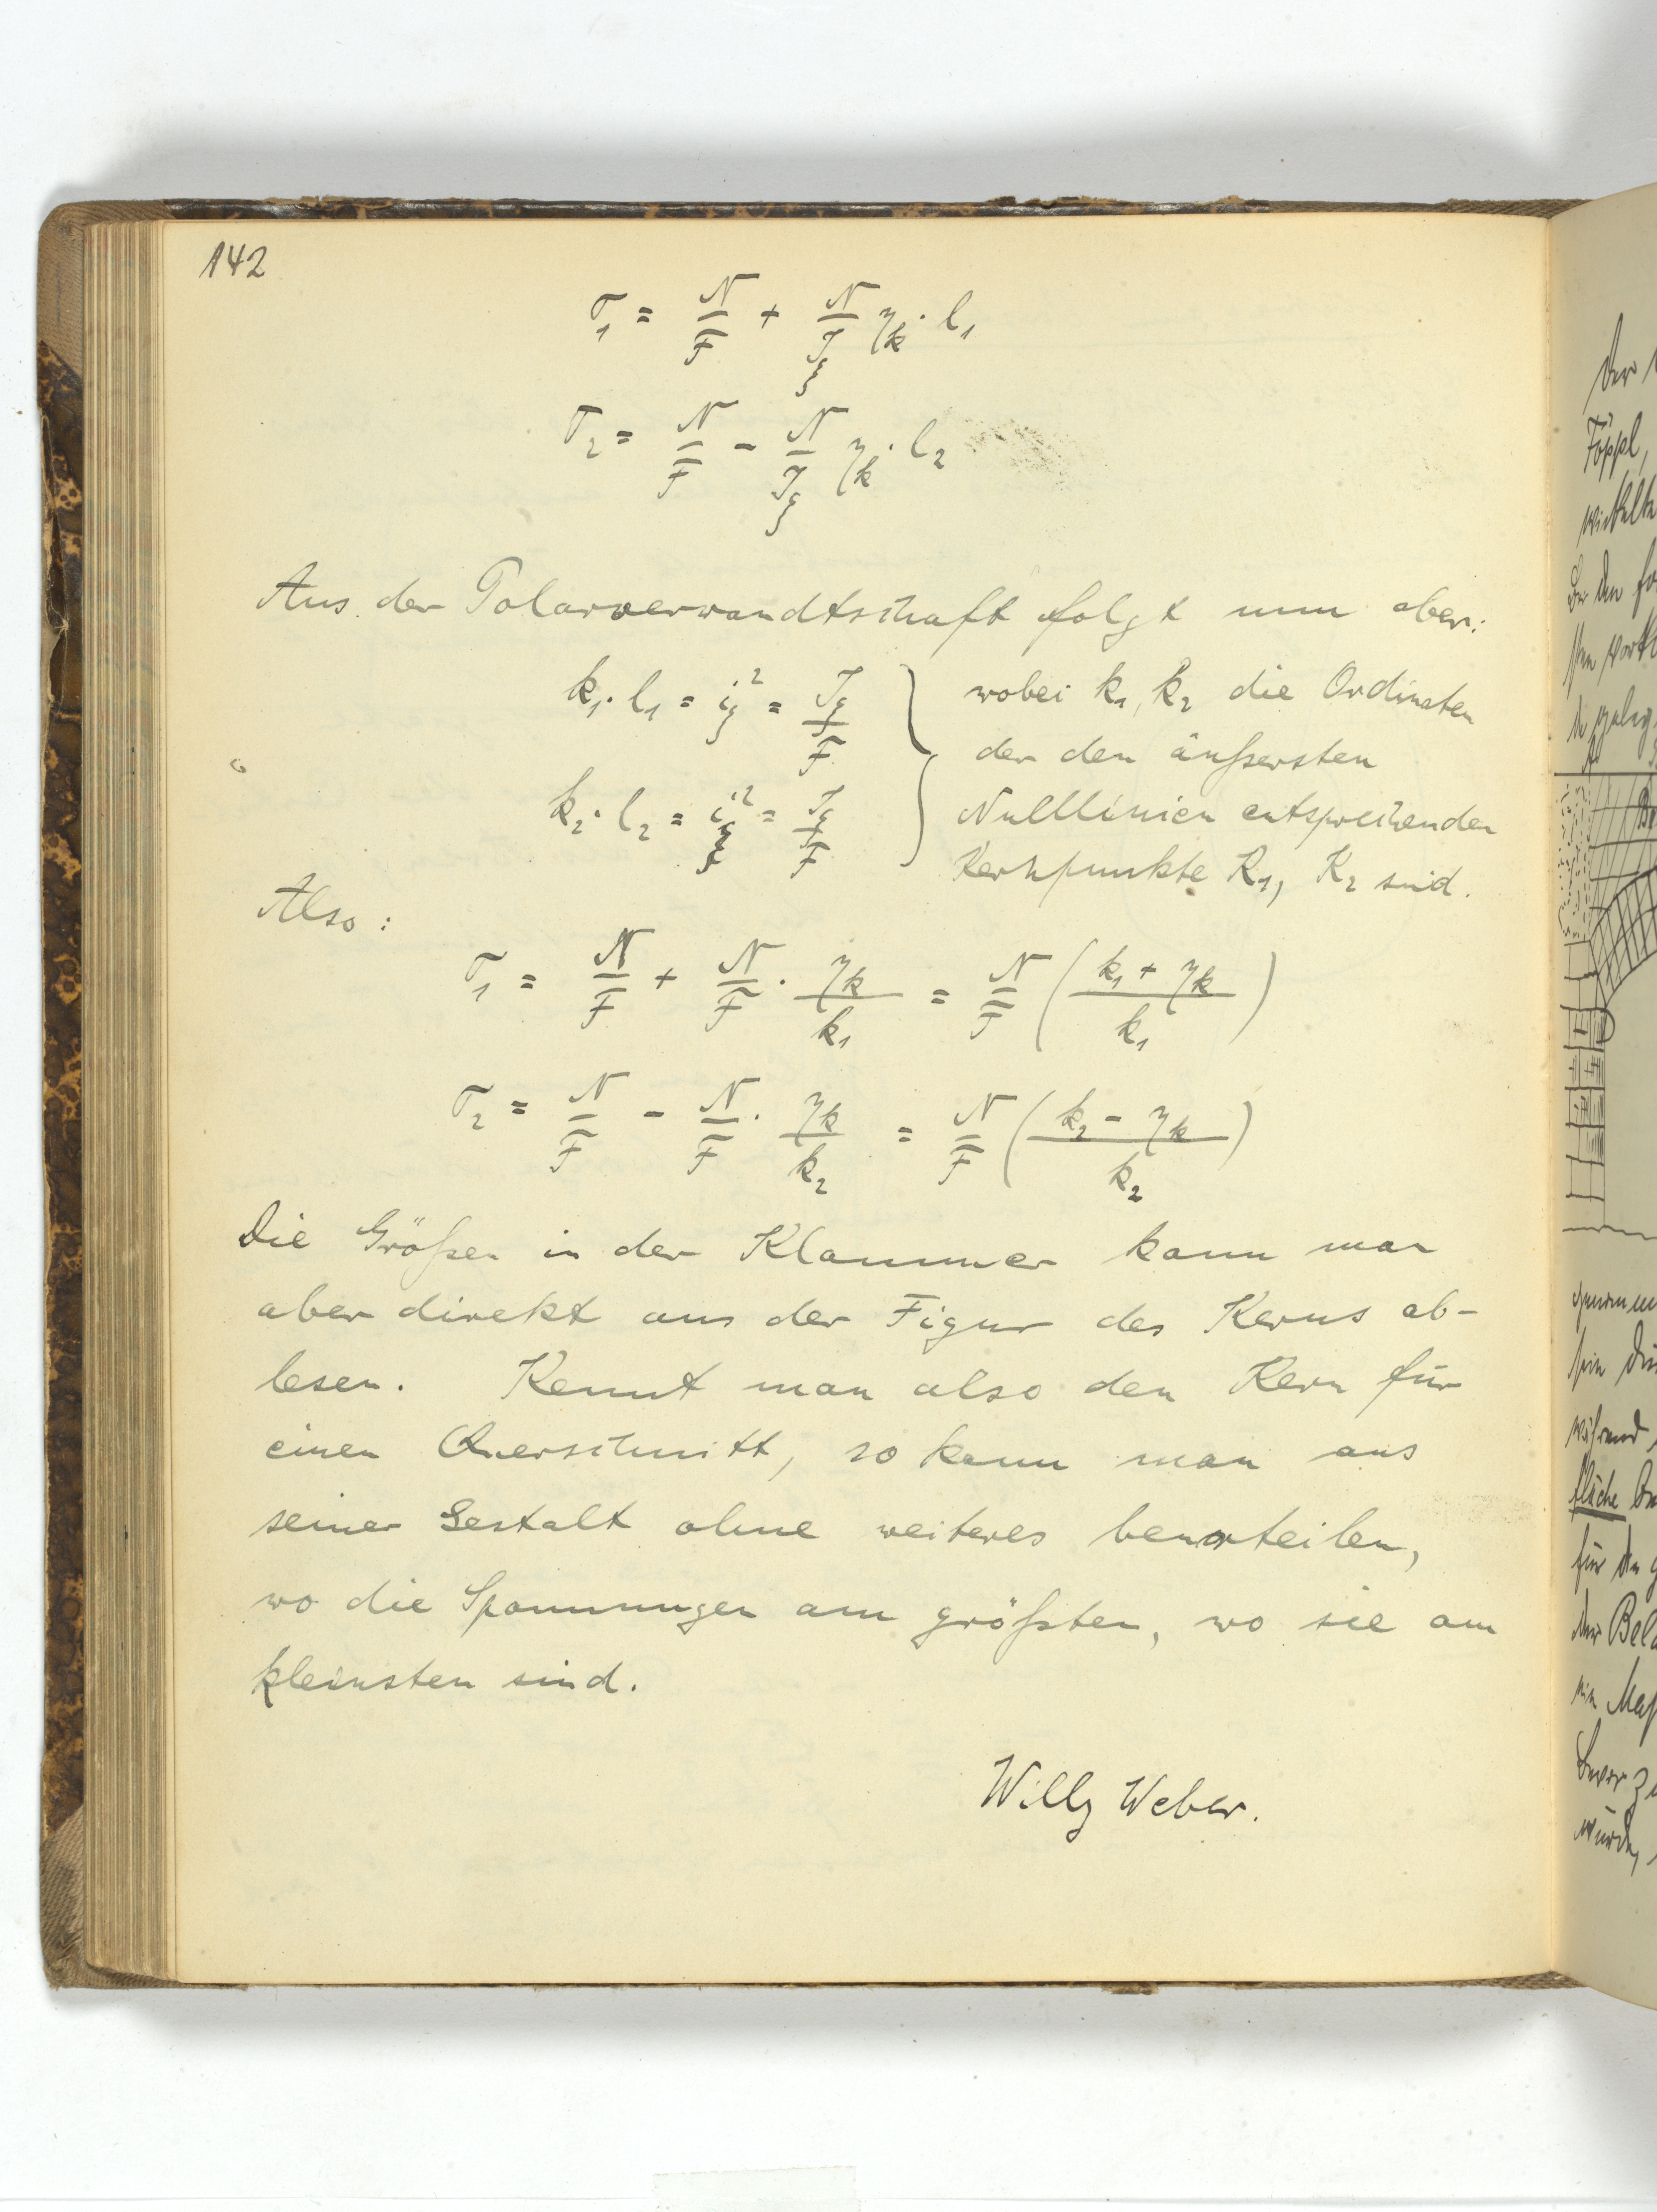 142
σ₁ = N/F + N/J_ξ η_k · l₁
σ₂ = N/F - N/J_ξ η_k · l₂
Aus der Polarverwandtschaft folgt nun aber:
k₁ · l₁ = i_ξ² = J_ξ/F } wobei k₁, k₂ die Ordinaten
der den äußersten
k₂ · l₂ = i_ξ² = J_ξ/F } Nulllinien entsprechenden
Kernpunkte K₁, K₂ sind.
Also:
σ₁ = N/F + N/F · η_k/k₁ = N/F ( (k₁ + η_k)/k₁ )
σ₂ = N/F - N/F · η_k/k₂ = N/F ( (k₂ - η_k)/k₂ )
Die Größen in der Klammer kann man
aber direkt aus der Figur des Kerns ab-
lesen. Kennt man also den Kern für
einen Querschnitt, so kann man aus
seiner Gestalt ohne weiteres beurteilen,
wo die Spannungen am größten, wo sie am
kleinsten sind.
Willy Weber.
Der
Föppl,
während
fläche
für den
der
würde,